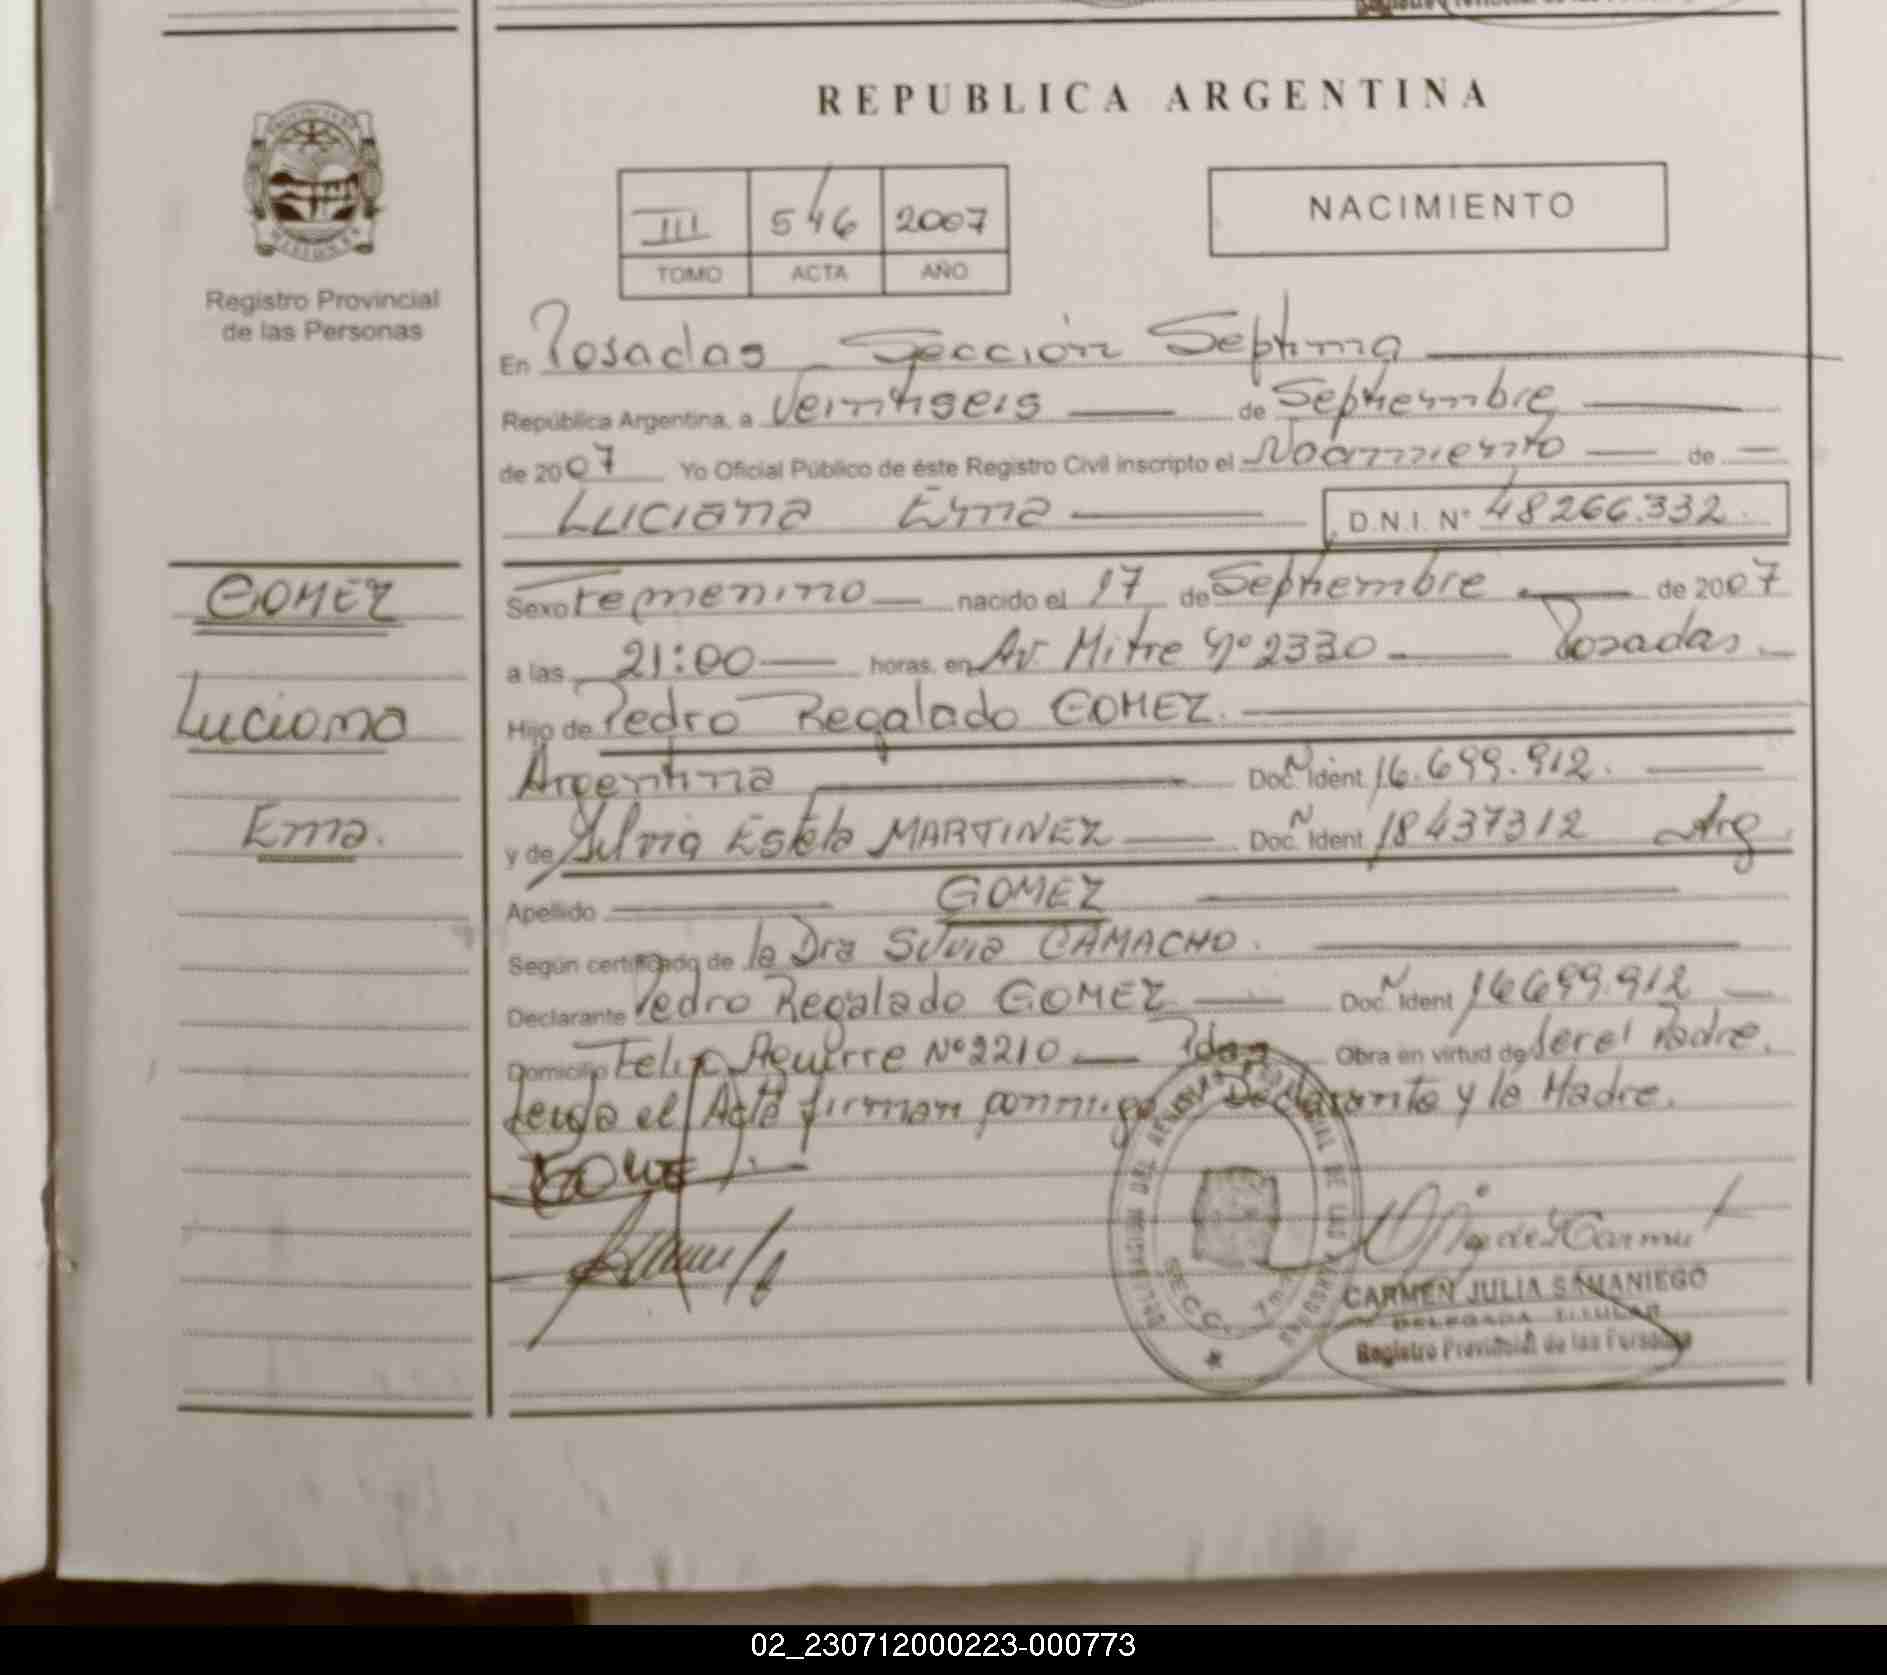 REPUBLICA ARGENTINA
III 546 2007
TOMO ACTA AÑO
NACIMIENTO
Registro Provincial
de las Personas
En Posadas Sección Septima
República Argentina, a Veintiseis de Septiembre
de 2007 Yo Oficial Público de éste Registro Civil inscripto el Nacimiento de
Luciana Ema D.N.I. Nº 48266.332
GOMEZ
Luciana
Ema.
Sexo Femenino nacido el 17 de Septiembre de 2007
a las 21:00 horas, en Av. Mitre Nº 2330 Posadas.
Hijo de Pedro Regalado GOMEZ.
Argentina Doc. N Ident 16.699.912.
y de Silvia Estela MARTINEZ Doc. N Ident 18437312 Arg.
Apellido GOMEZ
Según certificado de la Dra Silvia CAMACHO.
Declarante Pedro Regalado GOMEZ Doc. N Ident 16699.912
Domicilio Felix Aguirre Nº 2210 Pdas Obra en virtud de ser el Padre.
Leida el Acta firman conmigo Declarante y la Madre.
SECC. 7ma
CARMEN JULIA SAMANIEGO
DELEGADA TITULAR
Registro Provincial de las Personas
02_230712000223-000773